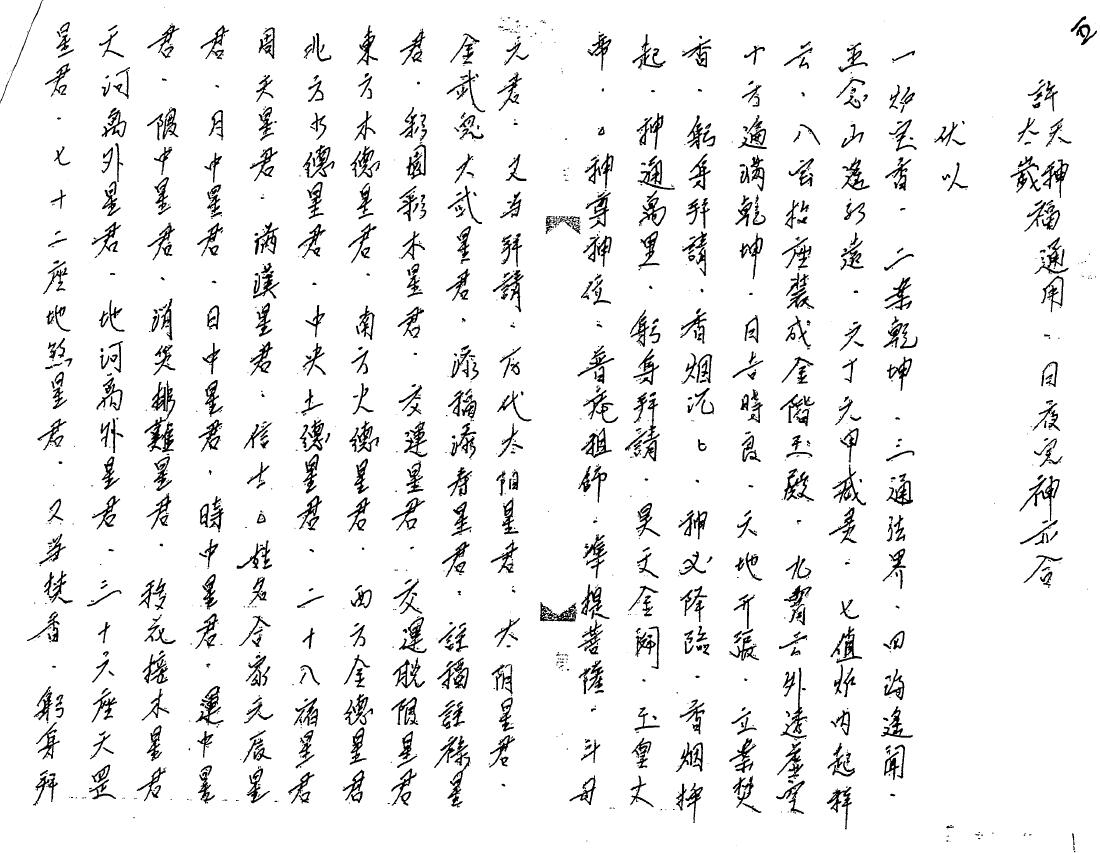 五
許天神福通用·日夜完神亦合
太歲
伏以
一炉宝香·二業乾坤·三通法界·四海遙聞·
五念山遙路遠·六丁六甲威灵·七值炉内起祥
云·八云抬座裝成金階玉殿·九霄云外透虛空
十方遍滿乾坤·日吉時良·天地开張·立案焚
香·躬身拜請·香烟沉沉·神必降臨·香烟捧
起·神通萬里·躬身拜請·昊天金闕·玉皇大
帝·△神尊神位·普庵祖師·準提菩薩·斗母
元君·又与拜請·历代太阳星君·太阴星君·
金武 大武星君·添福添寿星君·註福註祿星
君·移園移木星君·交運星君·交運脫限星君
東方木德星君·南方火德星君·西方金德星君
北方水德星君·中央土德星君·二十八宿星君
周天星君·满漢星君·信士△姓名合家元辰星
君·月中星君·日中星君·時中星君·運中星
君·限中星君·消災排難星君·移花接木星君
天河离外星君·地河离外星君·三十六座天罡
星君·七十二座地煞星君·又来焚香·躬身拜